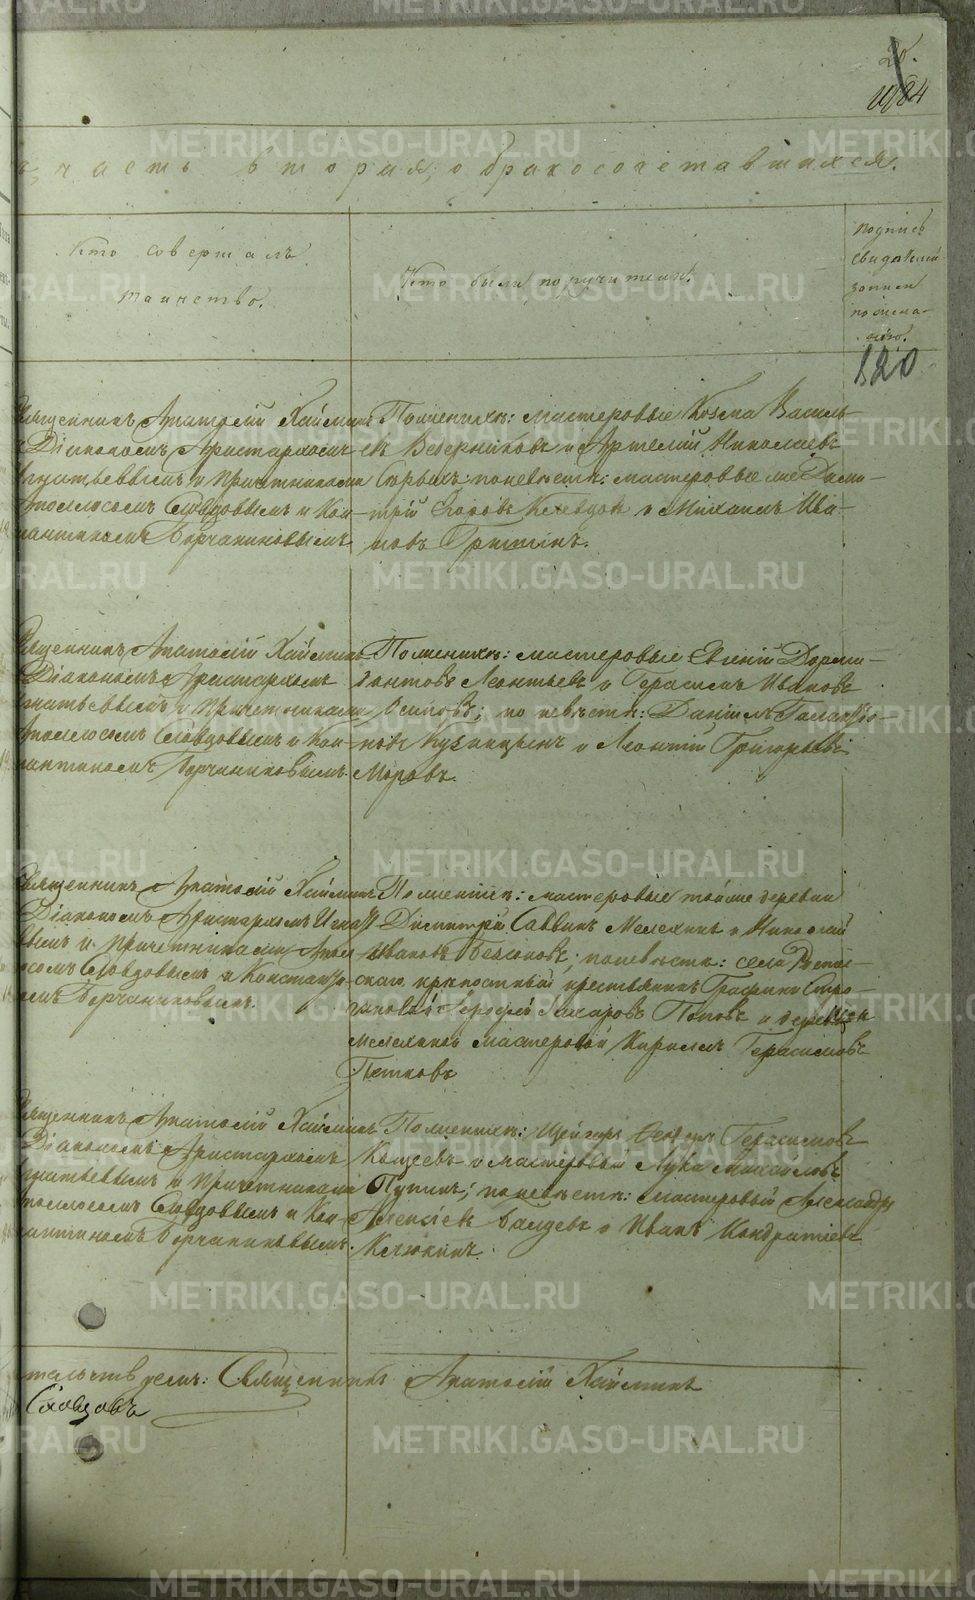 20.
1084
часть вторая, о бракосочетавшихся.
Кто совершалъ
таинство.
Кто были поручители.
подпись
свидѣтелей
записи
по жела-
нію.
120
Священникъ Анатолій Хаймин
Діакономъ Аристархомъ
Игнатьевымъ и причетниками
Аполлосомъ Словцовымъ и Кон-
стантиномъ Борчаниновымъ.
По женихѣ: мастеровые Козма Василь-
евъ Ведерниковъ и Артемій Николаевъ
по невѣстѣ: мастеровые же Дими-
трій и Михаилъ Ива-
новъ Гришинъ.
Священникъ Анатолій Хаймин
Діакономъ Аристархомъ
Игнатьевымъ и причетниками
Аполлосомъ Словцовымъ и Кон-
стантиномъ Борчаниновымъ.
По женихѣ: мастеровые Евгеній Дорми-
донтовъ Леонтьевъ и Герасимъ Ивановъ
Осиповъ; по невѣстѣ: Даніилъ Галактіо-
новъ Кузнецынъ и Леонтій Григорьевъ
Моровъ.
Священникъ Анатолій Хаймин
Діакономъ Аристархомъ Игнать-
вымъ и причетниками Апол-
лосомъ Словцовымъ и Константи-
номъ Борчаниновымъ.
По женихѣ: мастеровые той же деревни
Димитрій Саввинъ Мелехинъ и Николай
Ивановъ; по невѣстѣ: села
скаго крѣпостный крестьянинъ Графини Стро-
гановой Ерофей Захаровъ Поповъ и деревни
Мелехиной мастеровой Кириллъ Герасимовъ
Петковъ
Священникъ Анатолій Хаймин
Діакономъ Аристархомъ
Игнатьевымъ и причетниками
Аполлосомъ Словцовымъ и Кон-
стантиномъ Борчаниновымъ.
По женихѣ: Герасимовъ
Кощеевъ и мастеровой Лука Михайловъ
Путинъ; по невѣстѣ: мастеровой Александръ
Алексѣевъ и Иванъ Кондратіевъ
Клюкинъ.
Священникъ Анатолій Хаймин
Словцовъ
METRIKI.GASO-URAL.RU